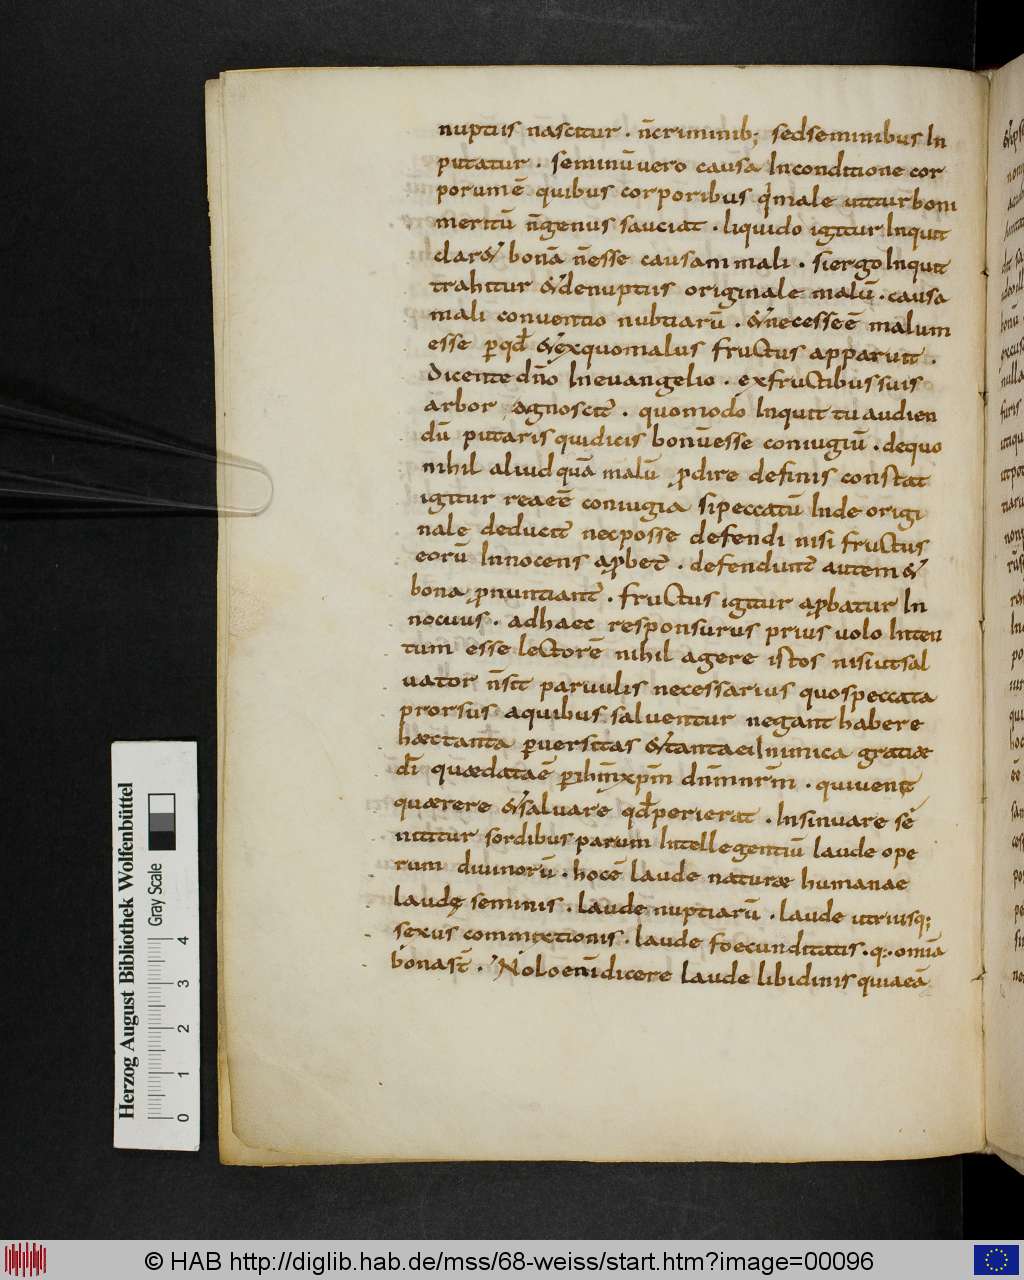 nuptiis nascitur . n̄criminib; sedseminibus In
putatur . seminūvero causa Inconditione cor
porumē quibus corporibus qđmale utiturboni
meritū n̄genus sauciat . liquido igitur Inquit
claret bonā n̄esse causammali . siergo Inquit
trahitur &denuptiis originale malū . causa
mali conventio nubtiarū . &necesseē malum
esse ꝑqđ &exquomalus fructus apparuit .
Dicente dn̄o Inevangelio . exfructibussuis
arbor agnoscit᷑ . quomodo Inquit tu audien
dū putaris quidicis bonūesse coniugiū . dequo
nihil aliud quā malū ꝓdire definis constat
igitur reaeē coniugia sipeccatū Inde origi
nale deducit᷑ necposse defendi nisi fructus
eorū Innocens aꝓbet᷑ . defendunt᷑ autem &
bona ꝓnuntiant᷑ . fructus igitur aꝓbatur In
nocuus . adhaec responsurus prius volo Inten
tum esse lectorē nihil agere istos nisiutsal
uator n̄sit paruulis necessarius quospeccata
prorsus aquibus saluentur negant habere
haectanta ꝑuersitas &tantaeiInimica gratiae
dī quaedataē ꝑihm̄xpm̄ dnm̄nrm̄ . quivenit
quaerere &saluare qđperierat . Insinuare se
nititur sordibus parum Intellegentiū laude ope
rum divinorū . hocē laude naturae humanae
laudę seminis . laude nuptiarū . laude utriusq;
sexus commixtionis . laude foecunditatis . q: omiā
bonast̄ . Noloenīdicere laude libidinis quiaeā
Herzog August Bibliothek Wolfenbüttel
Gray Scale
0 1 2 3 4
© HAB http://diglib.hab.de/mss/68-weiss/start.htm?image=00096